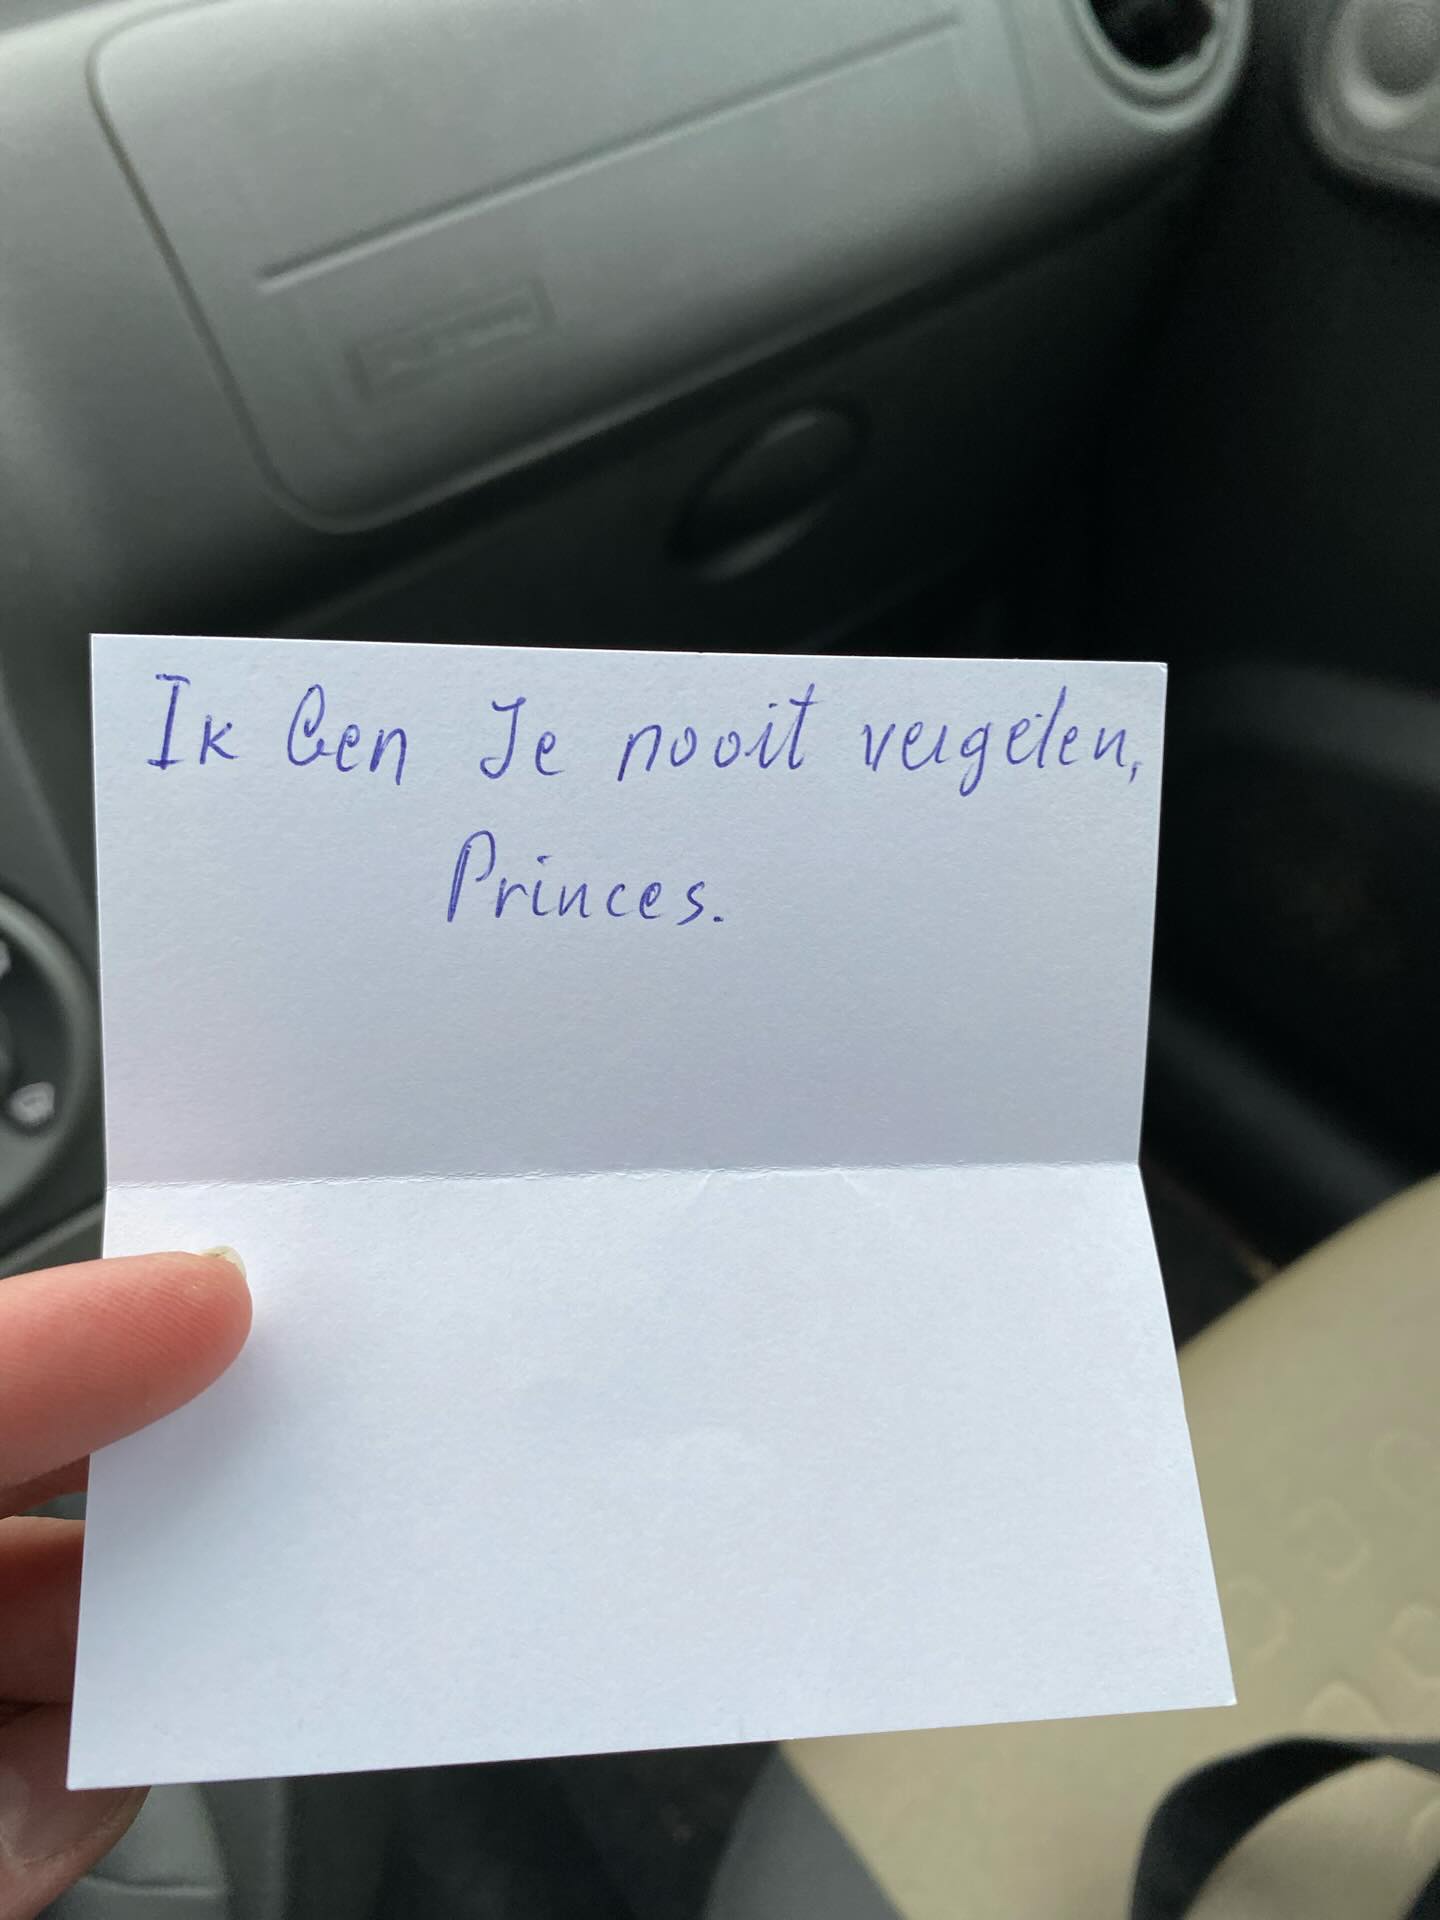 Ik ben Je nooit vergeten,
Princes.